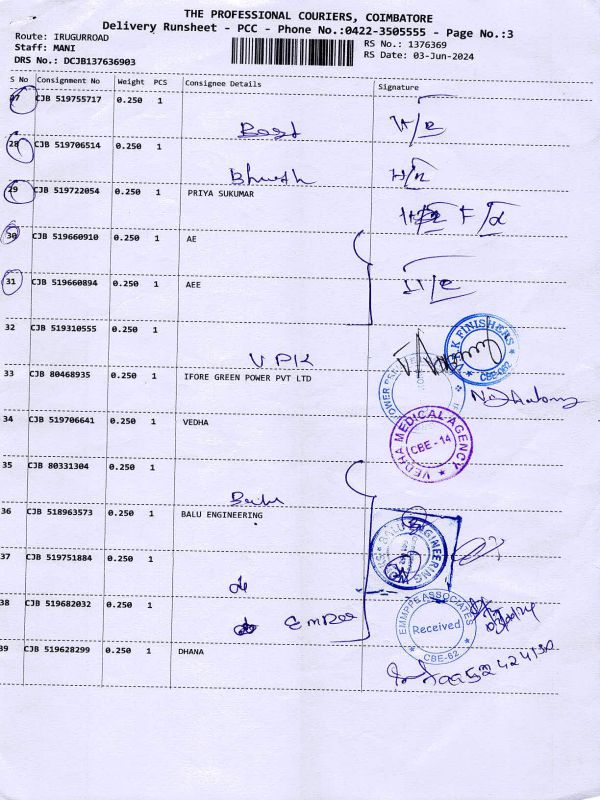 THE PROFESSIONAL COURIERS, COIMBATORE
Delivery Runsheet - PCC - Phone No.:0422-3505555 - Page No.:3
Route: IRUGURROAD
RS No.: 1376369
Staff: MANI
RS Date: 03-Jun-2024
DRS No.: DCJB137636903
S No Consignment No Weight PCS Consignee Details Signature
27 CJB 519755717 0.250 1
28 CJB 519706514 0.250 1
29 CJB 519722054 0.250 1 PRIYA SUKUMAR
30 CJB 519660910 0.250 1 AE
31 CJB 519660894 0.250 1 AEE
32 CJB 519310555 0.250 1
VPK
33 CJB 80468935 0.250 1 IFORE GREEN POWER PVT LTD
34 CJB 519706641 0.250 1 VEDHA
VEDHA MEDICAL AGENCY
CBE - 14
35 CJB 80331304 0.250 1
36 CJB 518963573 0.250 1 BALU ENGINEERING
BALU ENGINEERING
37 CJB 519751884 0.250 1
do
38 CJB 519682032 0.250 1
do
EMMPPE ASSOCIATES
Received
CBE-62
39 CJB 519628299 0.250 1 DHANA